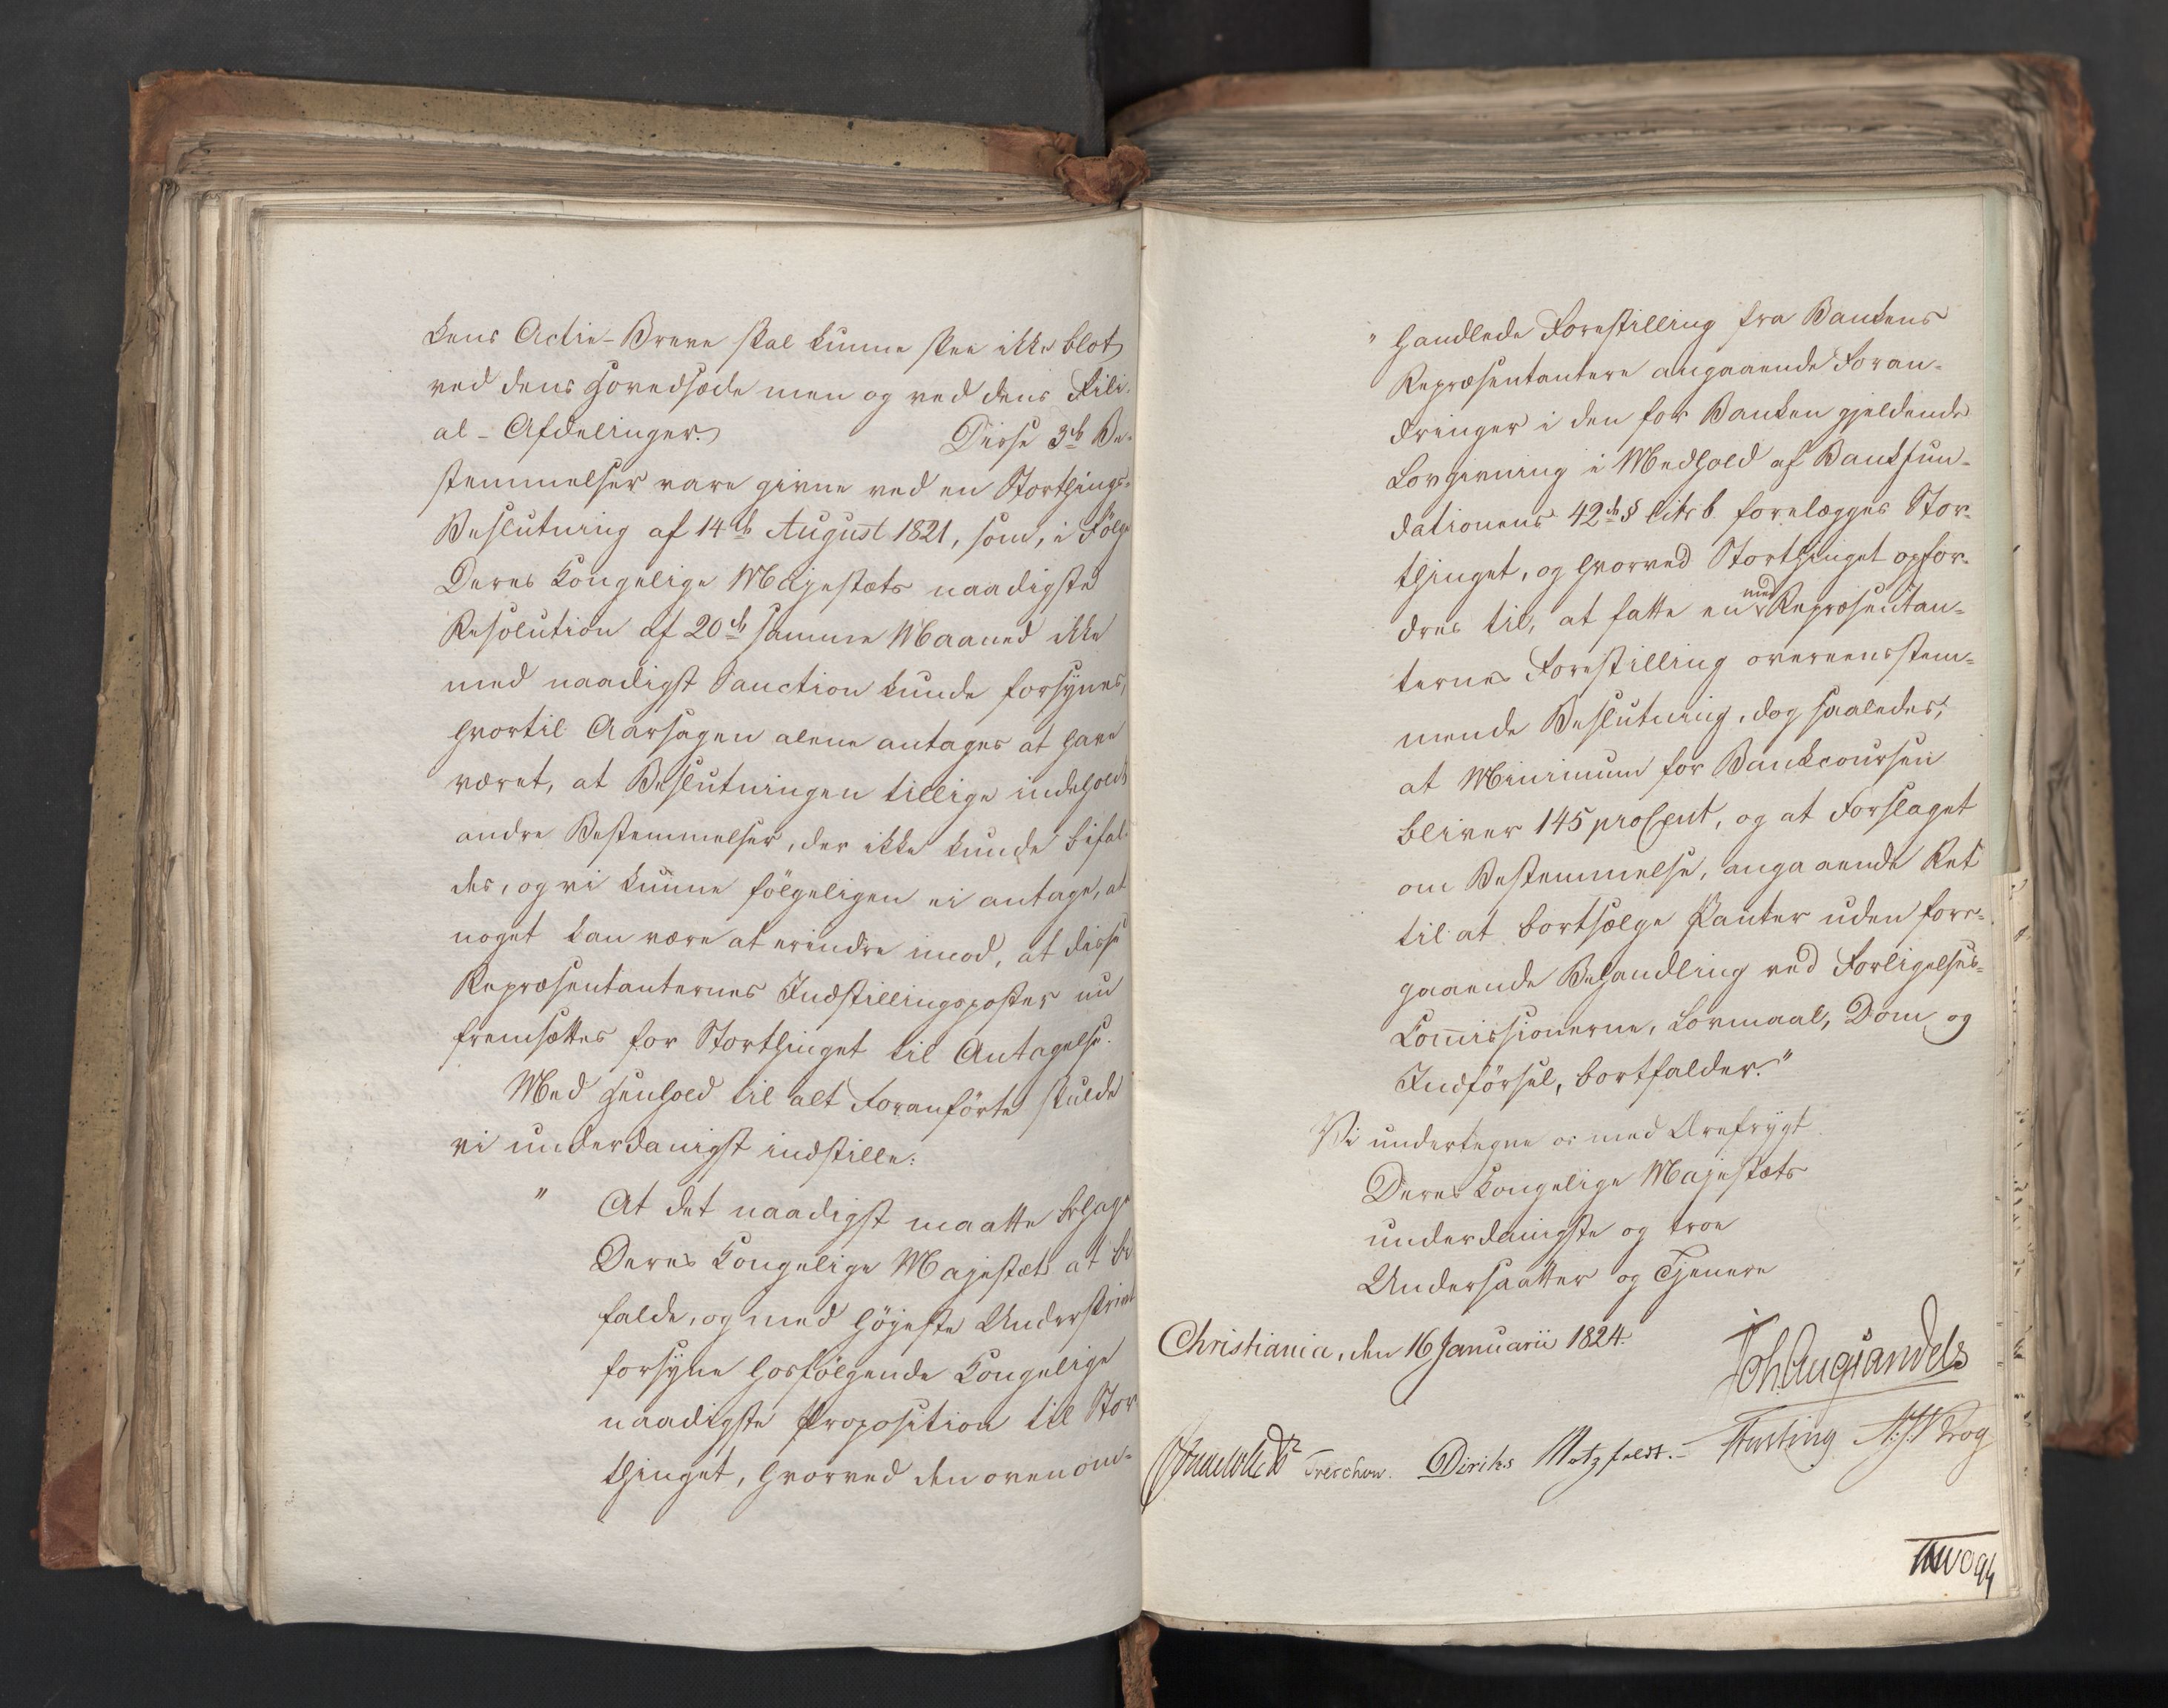 kens Actie-Breve skal kunne skee ikke blot
ved dens Hovedsæde men og ved dens Fili-
al-Afdelinger. Disse 3de Be-
stemmelser vare givne ved en Storthings-
Beslutning af 14de August 1821, som, i Følge
Deres Kongelige Majestæts naadigste
Resolution af 20de samme Maaned ikke
med naadigst Sanction kunde forsynes,
hvortil Aarsagen alene antages at have
været, at Beslutningen tillige indeholdt
andre Bestemmelser, der ikke kunde bifal-
des, og vi kunne følgeligen ei antage, at
noget kan være at erindre imod, at disse
Repræsentanternes Indstillingsposter nu
fremsættes for Storthinget til Antagelse.
Med Henhold til alt Foranførte skulde
vi underdanigst indstille:
" At det naadigst maatte behage
Deres Kongelige Majestæt at bi-
falde, og med høyeste Underskrivt
forsyne hosfølgende Kongelige
naadigste Proposition til Stor-
thinget, hvorved den ovenom-
" handlede Forestilling fra Bankens
Repræsentantere angaaende Foran-
dringer i den for Banken gjeldende
Lovgivning i Medhold af Bankfun-
dationens 42de § litr b forelægges Stor-
thinget, og hvorved Storthinget opfor-
dres til, at fatte en med Repræsentan-
ternes Forestilling overeensstem-
mende Beslutning, dog saaledes,
at Minimum for Bankcoursen
bliver 145 proCent, og at Forslaget
om Bestemmelse, angaaende Ret
til at bortsælge Panter uden fore-
gaaende Behandling ved Forligelses-
Com̅issionerne, Lovmaal, Dom og
Indførsel, bortfalder."
Vi undertegne os med Ærefrygt
Deres Kongelige Majestæts
underdanigste og troe
Undersaatter og Tjenere
Christiania, den 16 Januarii 1824.
Joh Aug Sandels
Treschow. Diriks Motzfeldt. Fasting